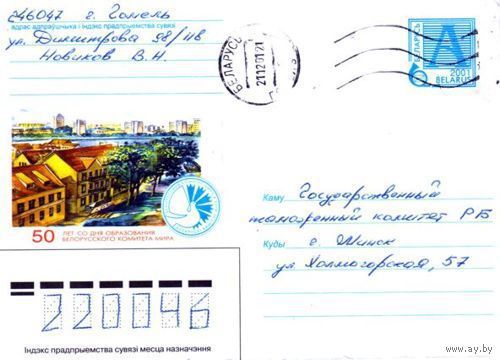 246047 г. Гомель
адрас адпраўшчыка і індэкс прадпрыемства сувязі
ул. Димитрова 98/48
Новиков В. Н.
БЕЛАРУСЬ
211201 21
БЕЛАРУСЬ
А
2001
BELARUS
50 ЛЕТ СО ДНЯ ОБРАЗОВАНИЯ
БЕЛОРУССКОГО КОМИТЕТА МИРА
Каму Государственный
таможенный комитет РБ
Куды г. Минск
ул Холмогорская, 57
220046
Індэкс прадпрыемства сувязі месца назначэння
www.ay.by